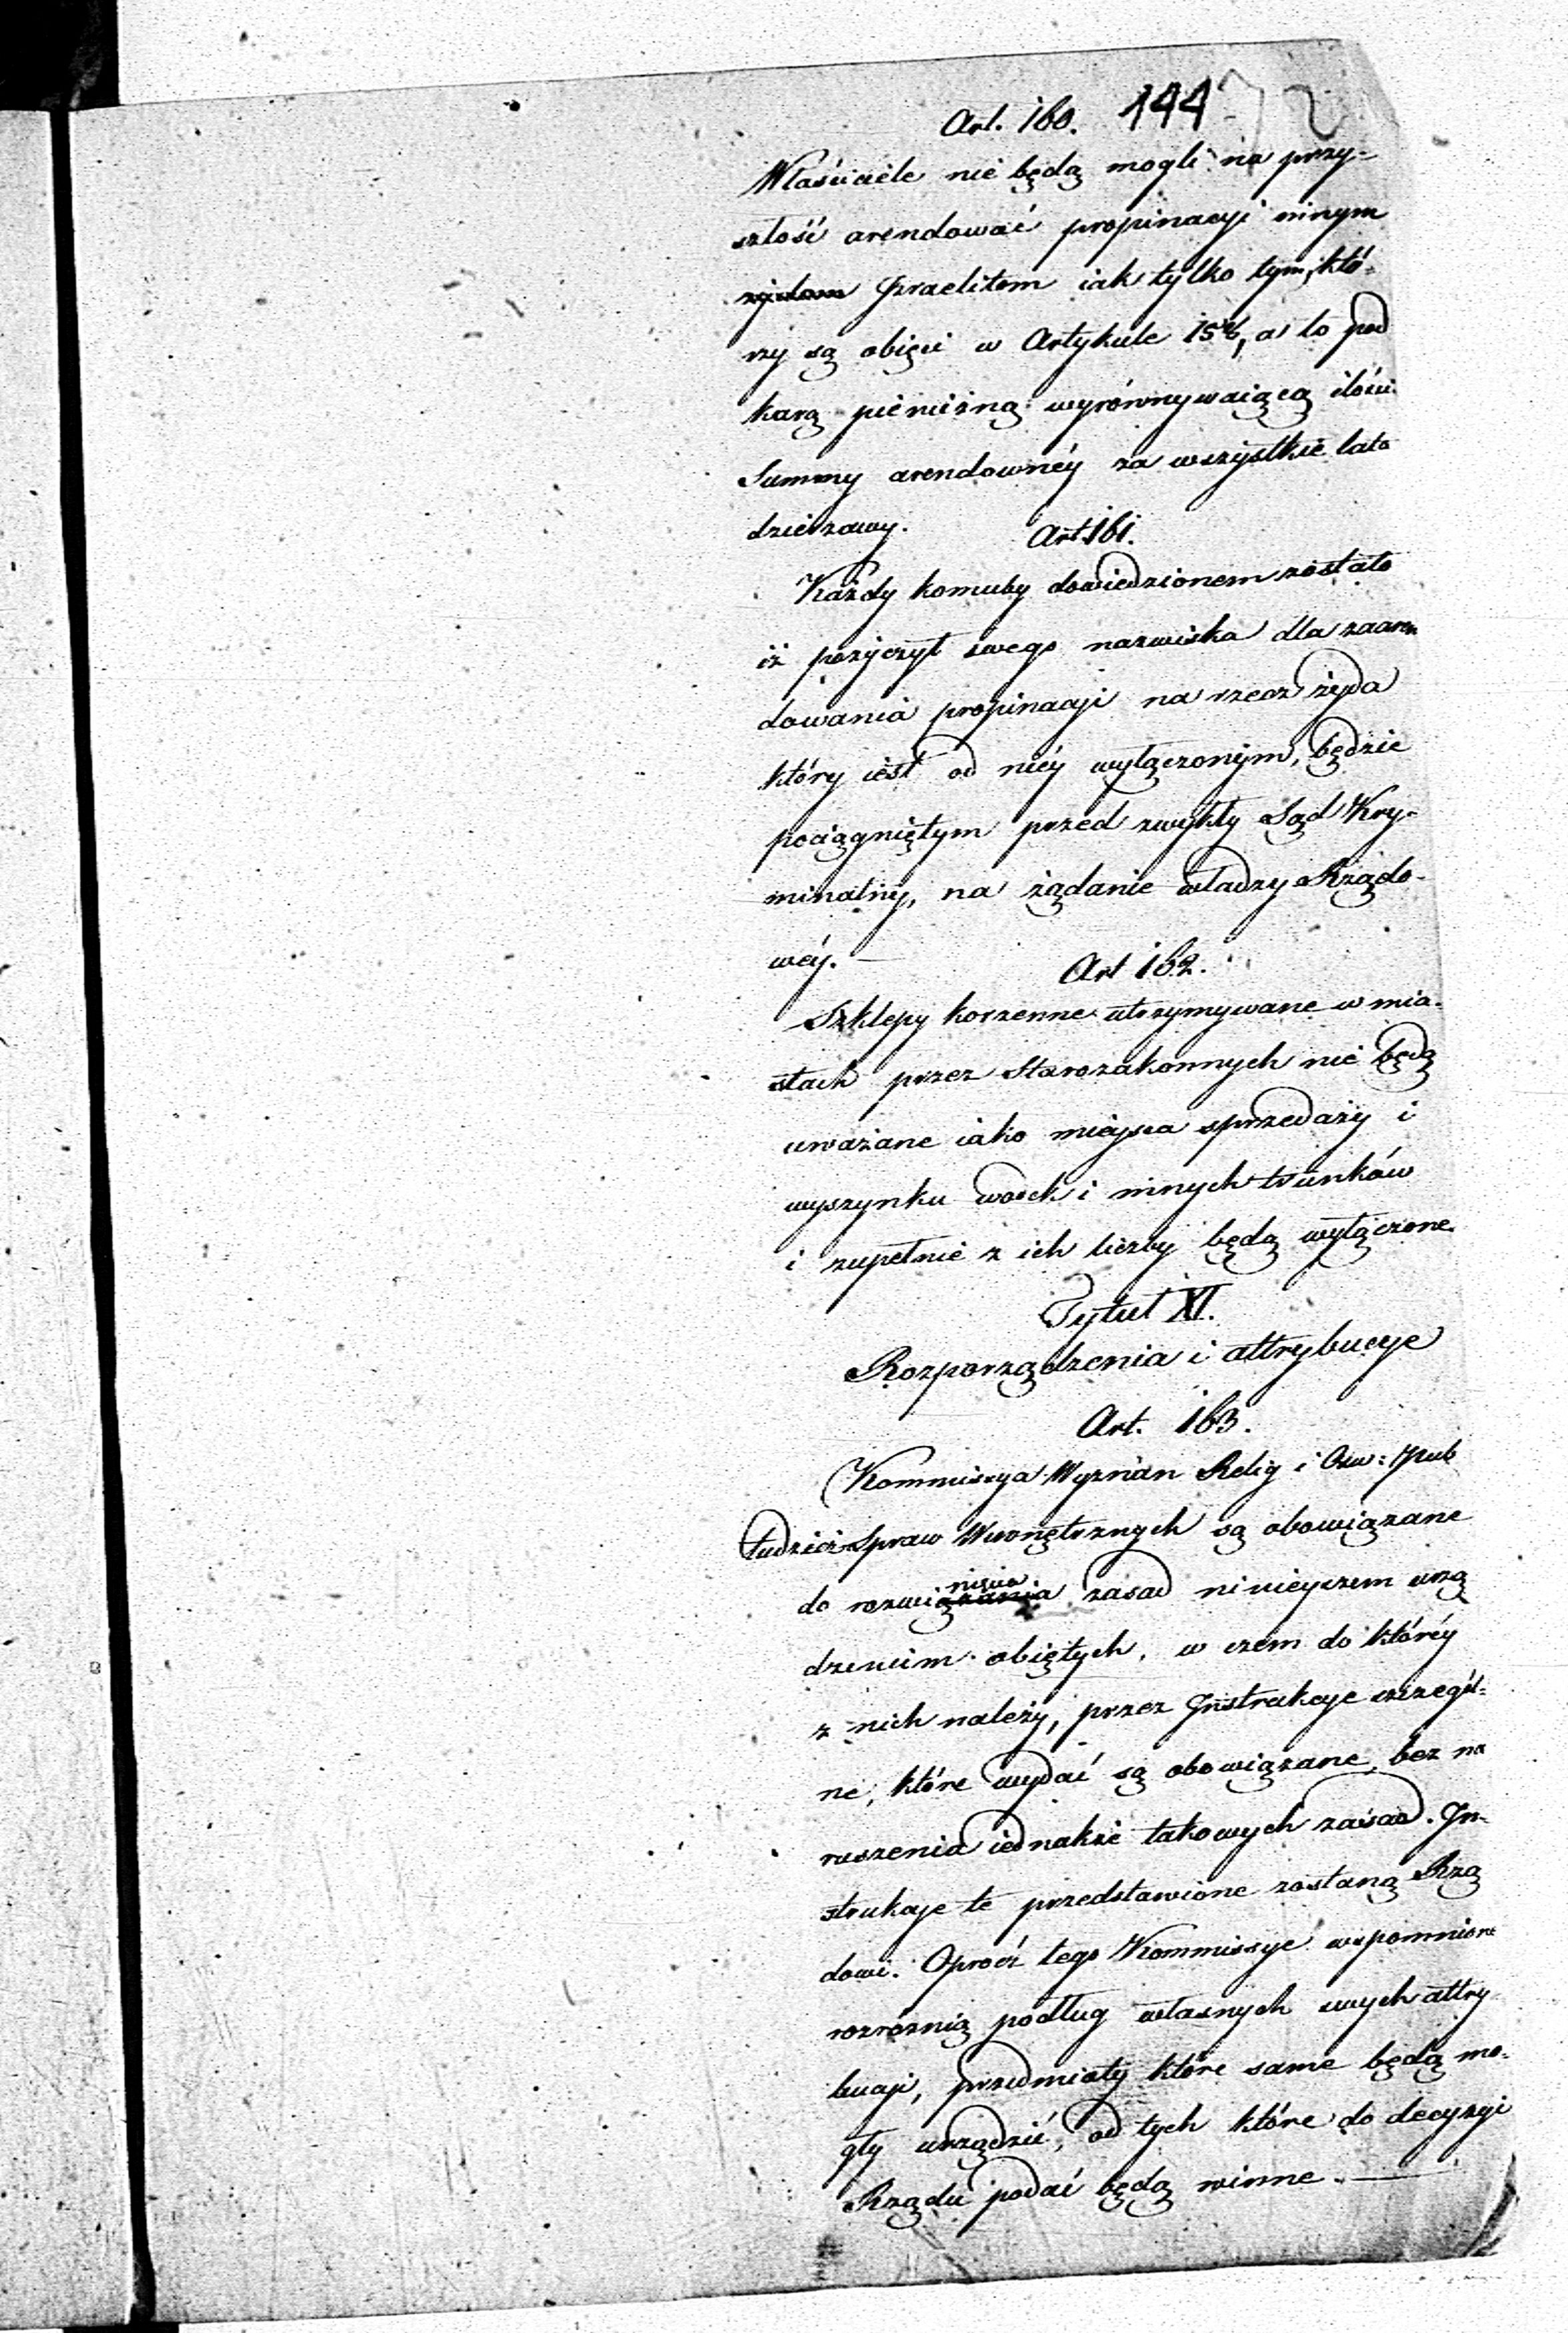 Art. 160. 144 72
Właściciele nie będą mogli na przy-
szłość arendować propinacyi innym
żydom Izraelitom iak tylko tym, któ-
rzy są obięci w Artykule 158, a to pod
karą pieniężną wyrównywaiącą ilości
Summy arendownéy za wszystkie lata
dzierzawy. Art. 161.
Każdy komuby dowiedzionem zostało
iż pożyczył swego nazwiska dla zaaren
dowania propinacyi na rzecz żyda
który iest od niéy wyłączonym, będzie
pociągniętym przed zwykły Sąd Kry-
minalny, na żądanie władzy Rządo-
wéy. — Art 162.
Szklepy korzenne utrzymywane w mia-
stach przez Starozakonnych nie będą
uważane iako mieysca sprzedaży i
wyszynku wódek i innych trunków
i zupełnie z ich liczby będą wyłączone.
Tytuł XI.
Rozporządzenia i attrybucye
Art. 163.
Kommissya Wyznań Relig i Ośw: Pub
tudzież Spraw Wewnętrznych są obowiązane
do rozwiązania nięcia zasad ninieyszem urzą
dzeniem obiętych, w czem do któréy
z nich należy, przez Instrukcye szczegól-
ne, które wydać są obowiązane, bez na
ruszenia iednakże takowych zasad. In-
strukcye te przedstawione zostaną Rzą
dowi. Oprócz tego Kommissye wspomnione
rozróżnią podług własnych swych attry
bucyi, przedmioty które same będą mo-
gły urządzić, od tych które do decyzyi
Rządu podać będą winne. —